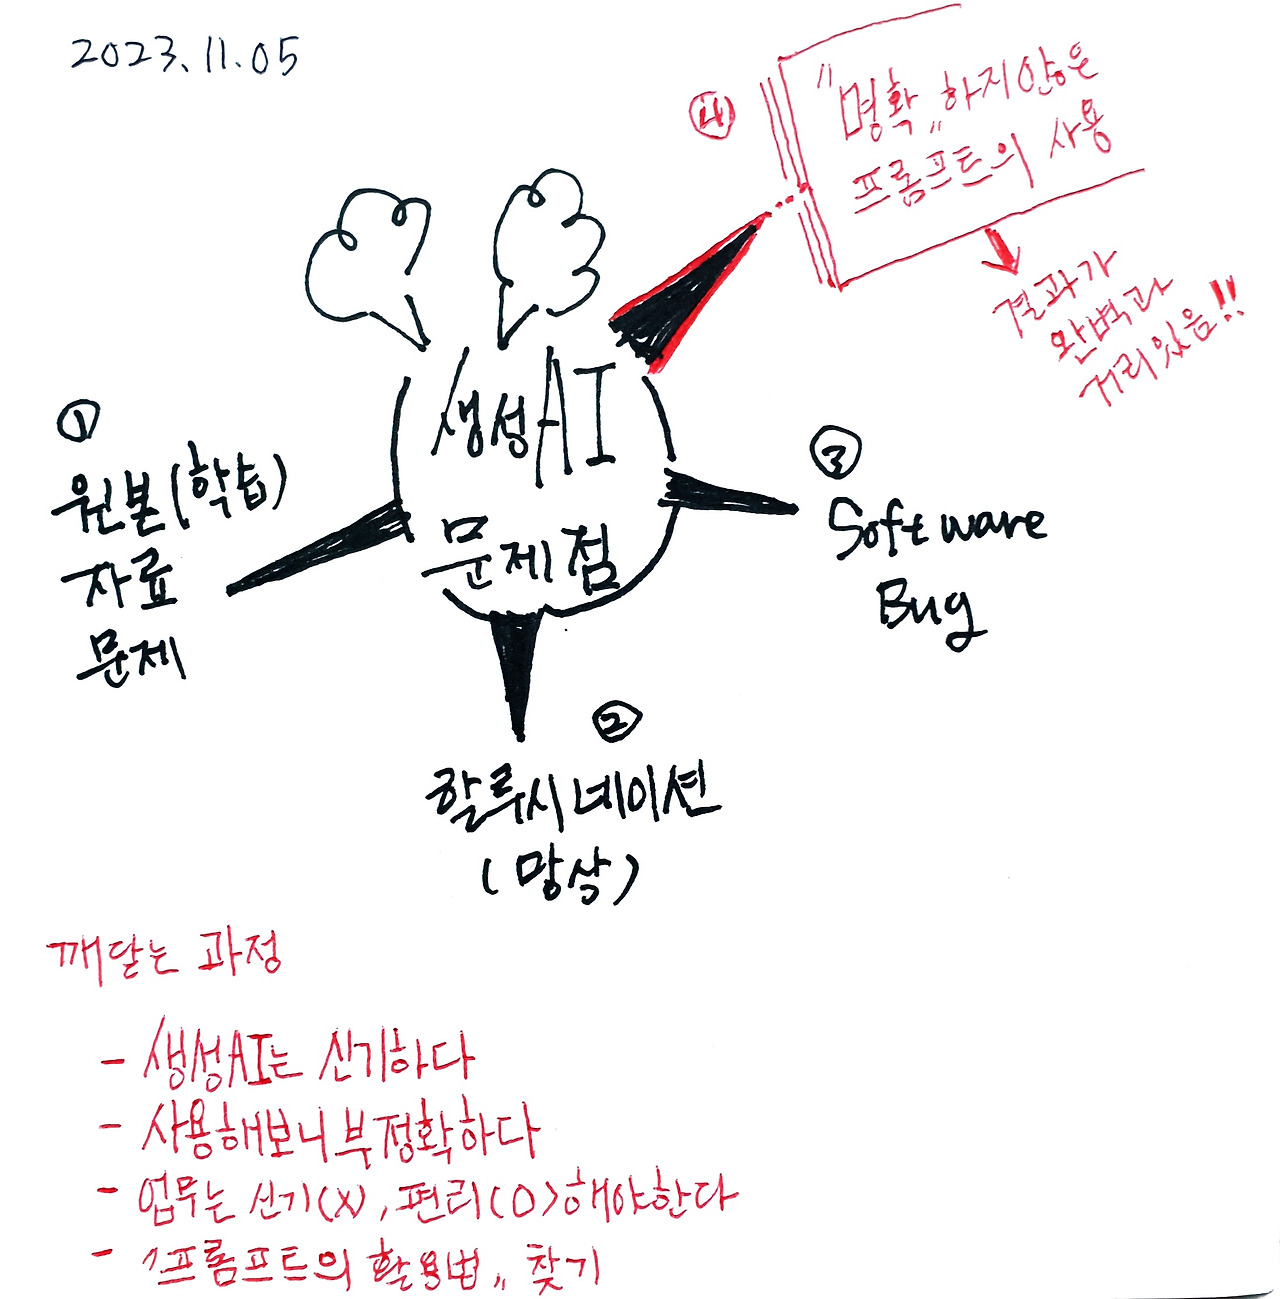 2023.11.05
④
"명확" 하지않은
프롬프트의 사용
결과가
완벽과
거리있음!!
생성AI
문제점
①
원본(학습)
자료
문제
③
Software
Bug
②
할루시네이션
(망상)
깨닫는 과정
- 생성AI는 신기하다
- 사용해보니 부정확하다
- 업무는 신기(X), 편리(O)해야한다
- "프롬프트의 활용법" 찾기